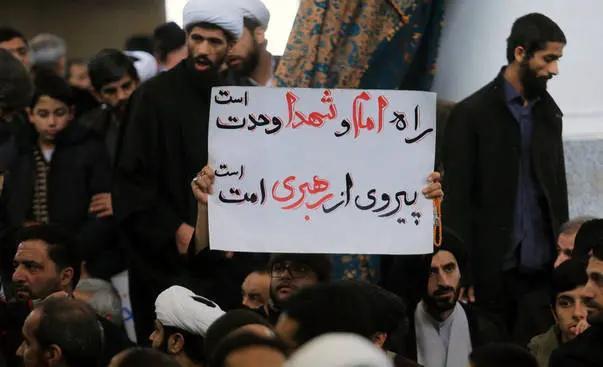 راه امام و شهدا وحدت است
پیروی از رهبری امت است